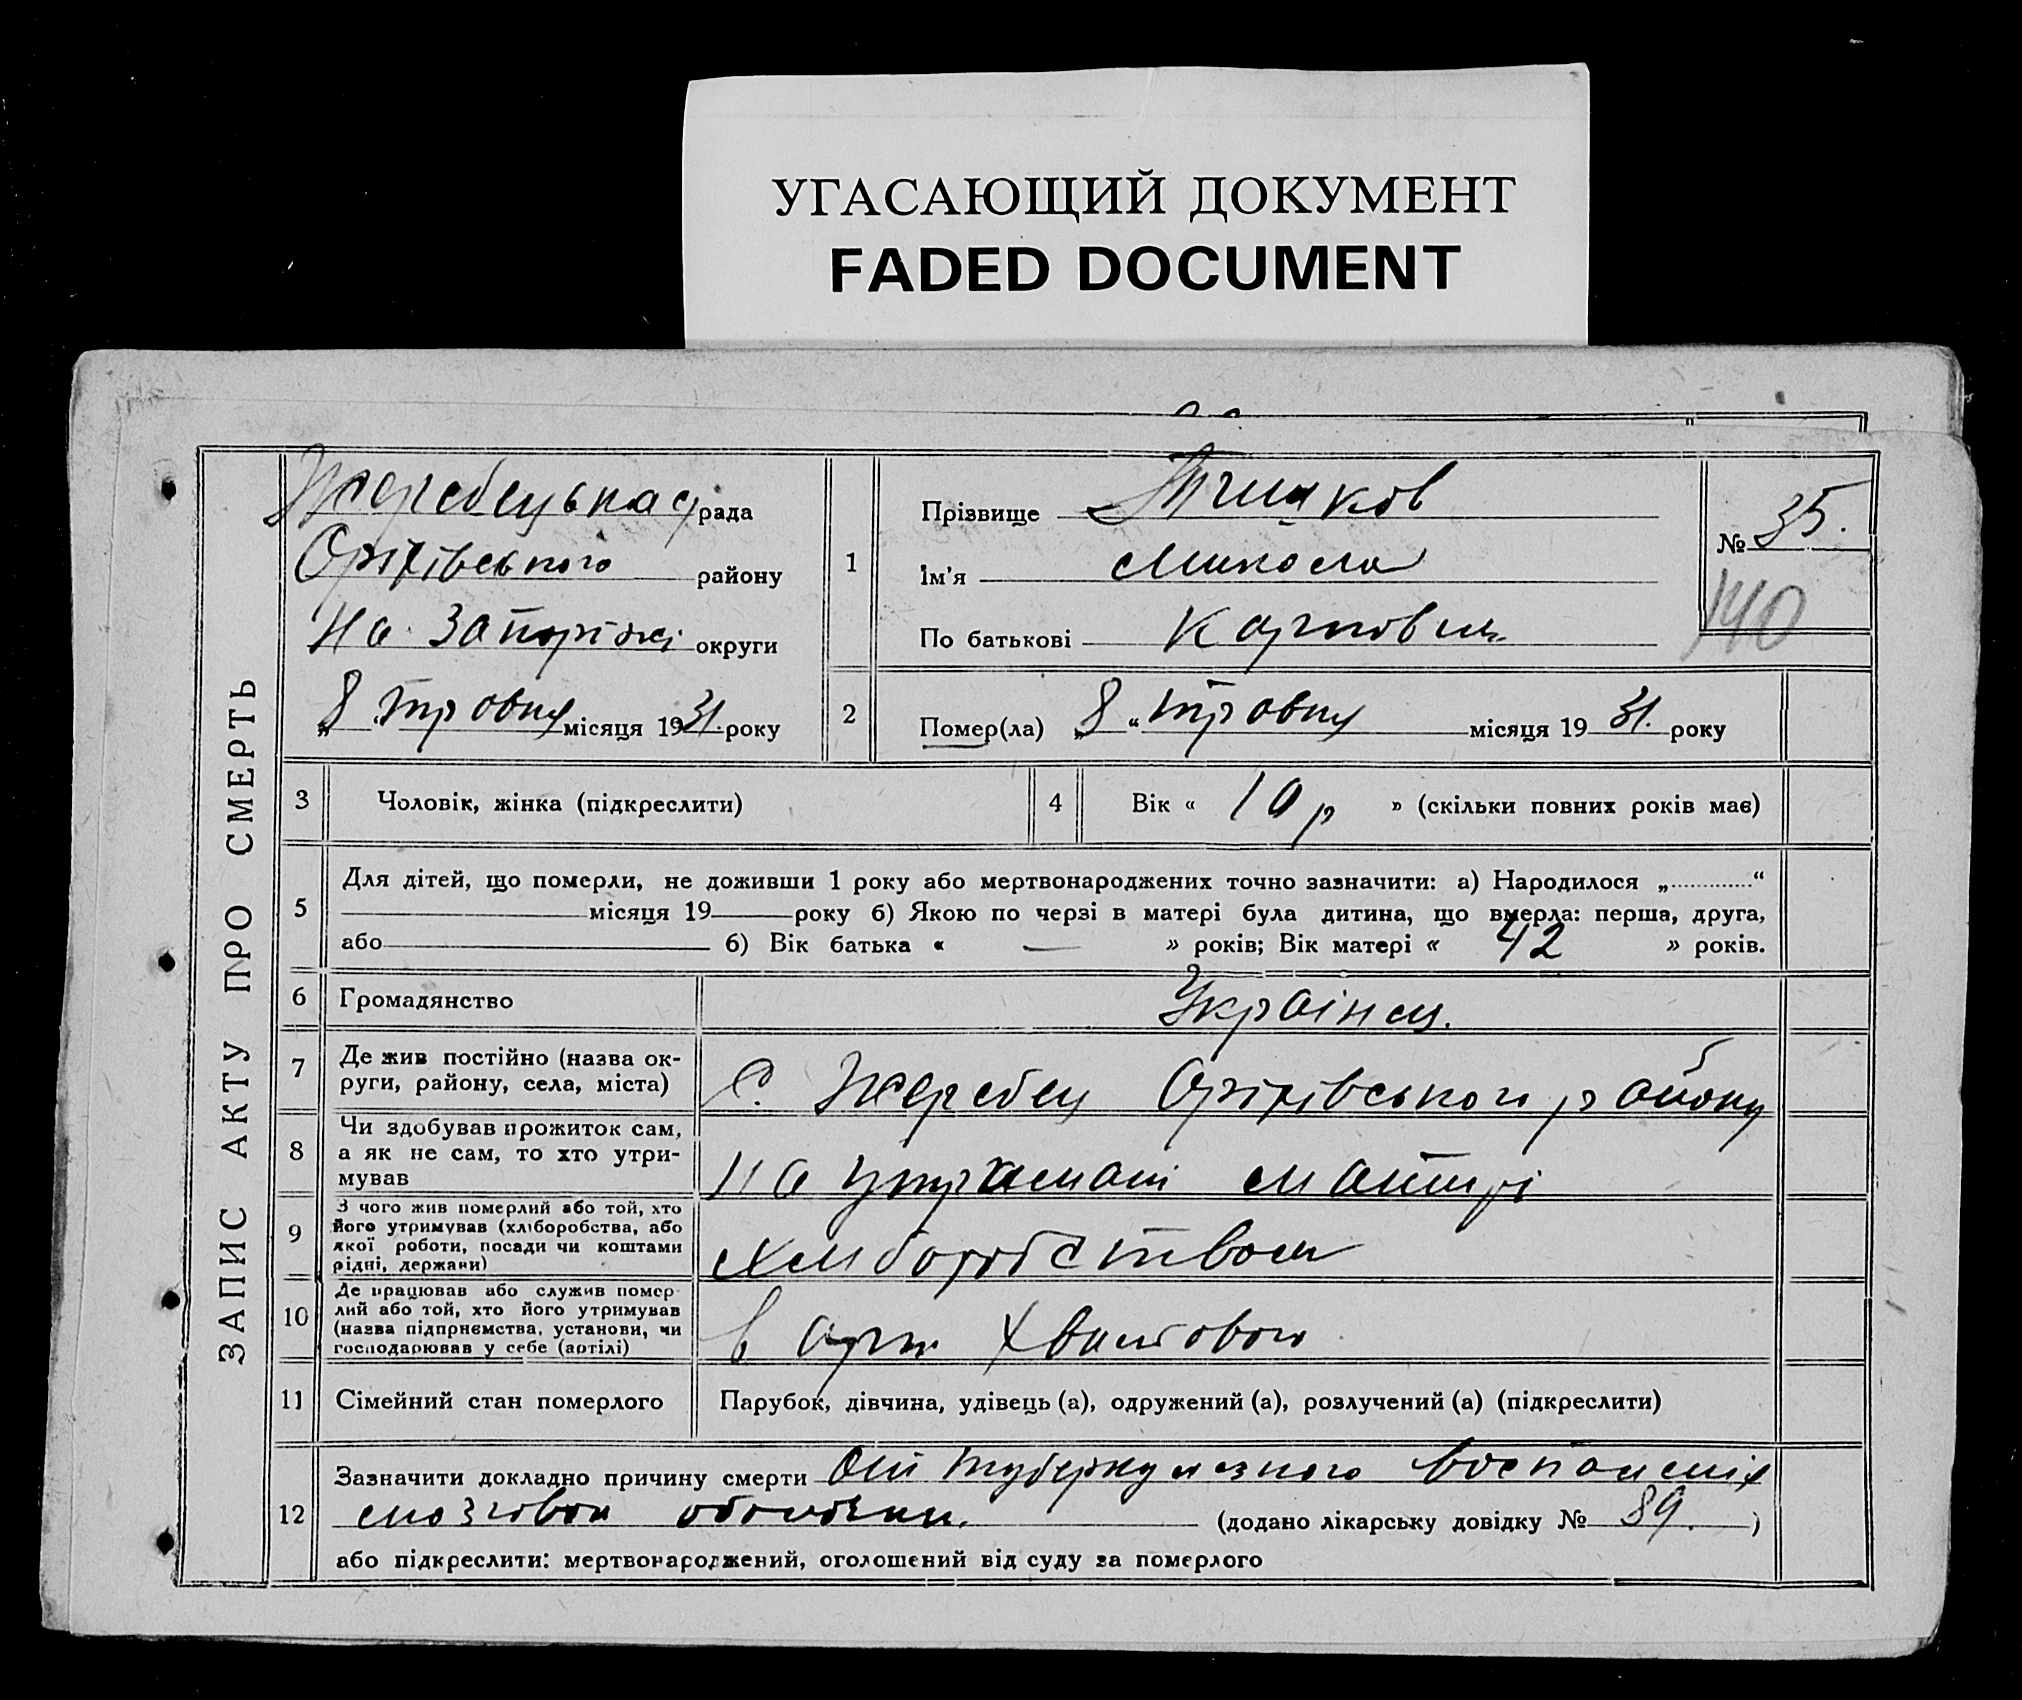 УГАСАЮЩИЙ ДОКУМЕНТ
FADED DOCUMENT
ЗАПИС АКТУ ПРО СМЕРТЬ
Жеребецька с/рада
Оріхівського району
На Запоріжжі округи
8 травня місяця 1931. року
1
Прізвище
Ім'я Микола
По батькові Карпович
№ 35.
140
2
Помер(ла) „8“ травня місяця 1931. року
3 Чоловік, жінка (підкреслити)
4 Вік « 10 р » (скільки повних років має)
5
Для дітей, що померли, не доживши 1 року або мертвонароджених точно зазначити: а) Народилося „............“
місяця 19 року б) Якою по черзі в матері була дитина, що вмерла: перша, друга,
або б) Вік батька « — » років; Вік матері « 42 » років.
6 Громадянство Українец.
7
Де жив постійно (назва ок-
руги, району, села, міста)
С. Жеребец Оріхівського району
8
Чи здобував прожиток сам,
а як не сам, то хто утри-
мував
На утримані матирі
9
З чого жив померлий або той, хто
його утримував (хліборобства, або
якої роботи, посади чи коштами
рідні, держави)
Хліборобством
10
Де працював або служив помер-
лий або той, хто його утримував
(назва підприємства, установи, чи
господарював у себе (артілі)
в арт
11 Сімейний стан померлого Парубок, дівчина, удівець (а), одружений (а), розлучений (а) (підкреслити)
12
Зазначити докладно причину смерти От туберкулезного воспаления
мозговой оболочки. (додано лікарську довідку № 89. )
або підкреслити: мертвонароджений, оголошений від суду за померлого